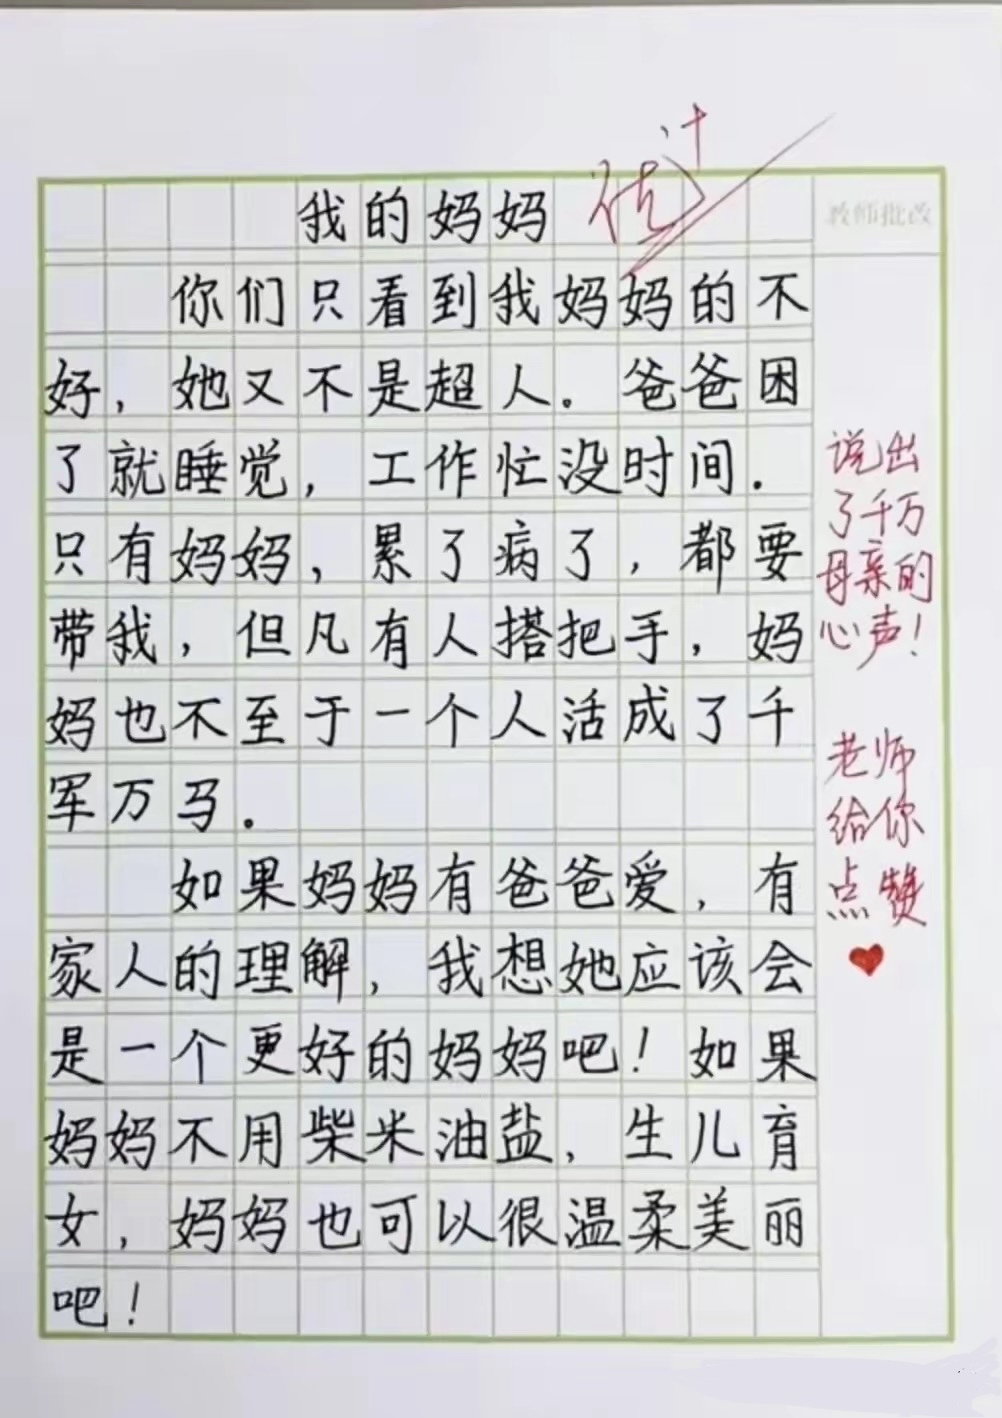 我的妈妈
优+
教师批改
你们只看到我妈妈的不
好，她又不是超人。爸爸困
了就睡觉，工作忙没时间.
只有妈妈，累了病了，都要
带我，但凡有人搭把手，妈
妈也不至于一个人活成了千
军万马。
如果妈妈有爸爸爱，有
家人的理解，我想她应该会
是一个更好的妈妈吧！如果
妈妈不用柴米油盐，生儿育
女，妈妈也可以很温柔美丽
吧！
说出
了千万
母亲的
心声！
老师
给你
点赞